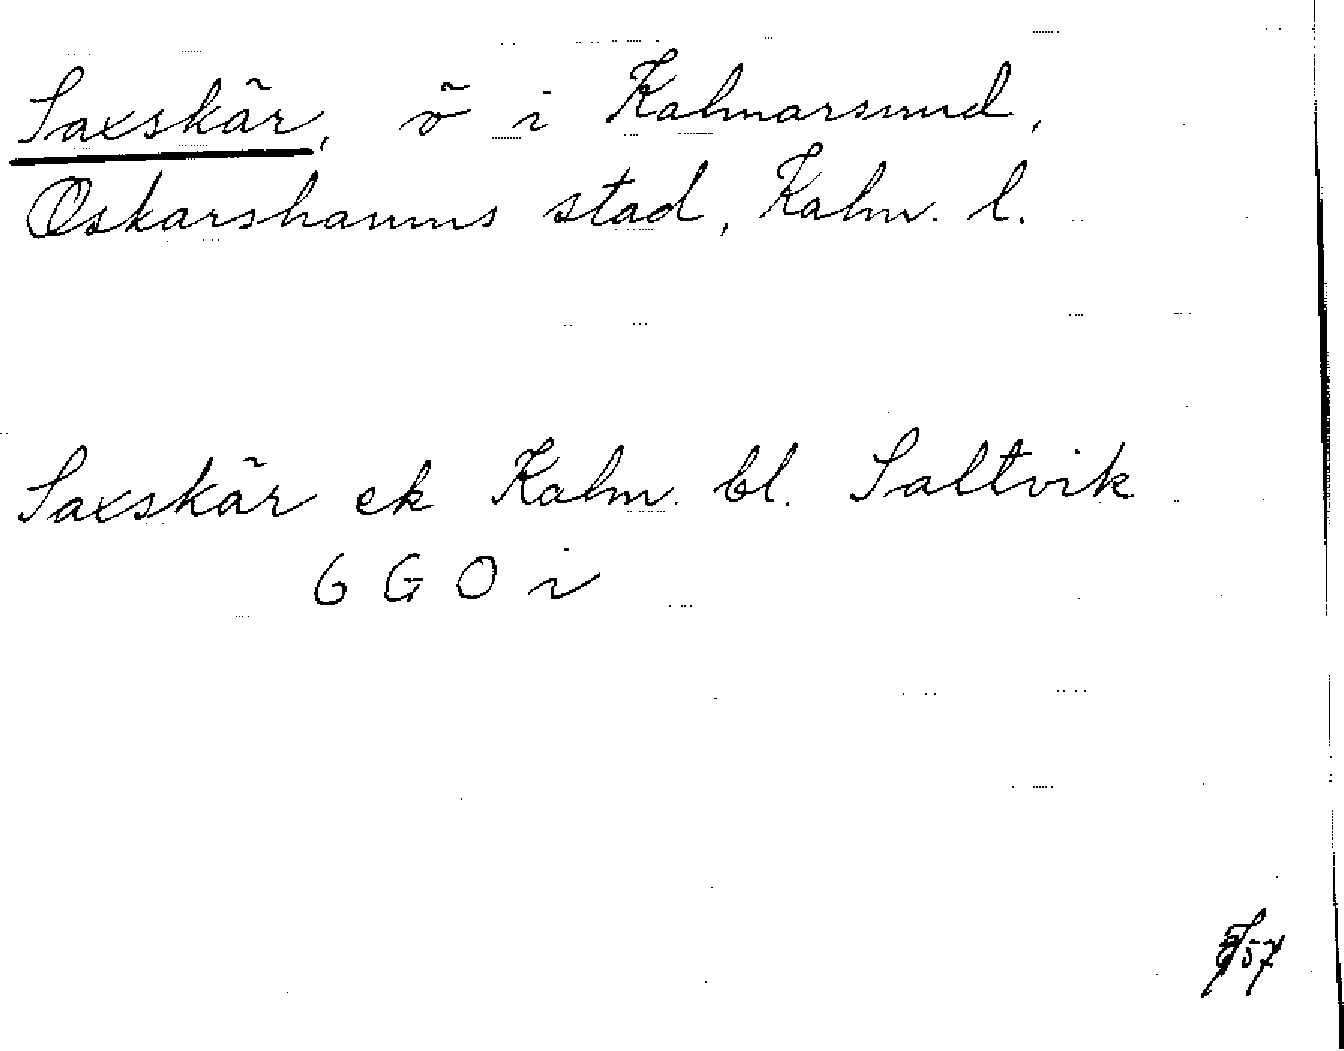 Saxskär, ö i Kalmarsund,
Oskarshamns stad, Kalm. l.
Saxskär ek Kalm. bl. Saltvik
6 G O i